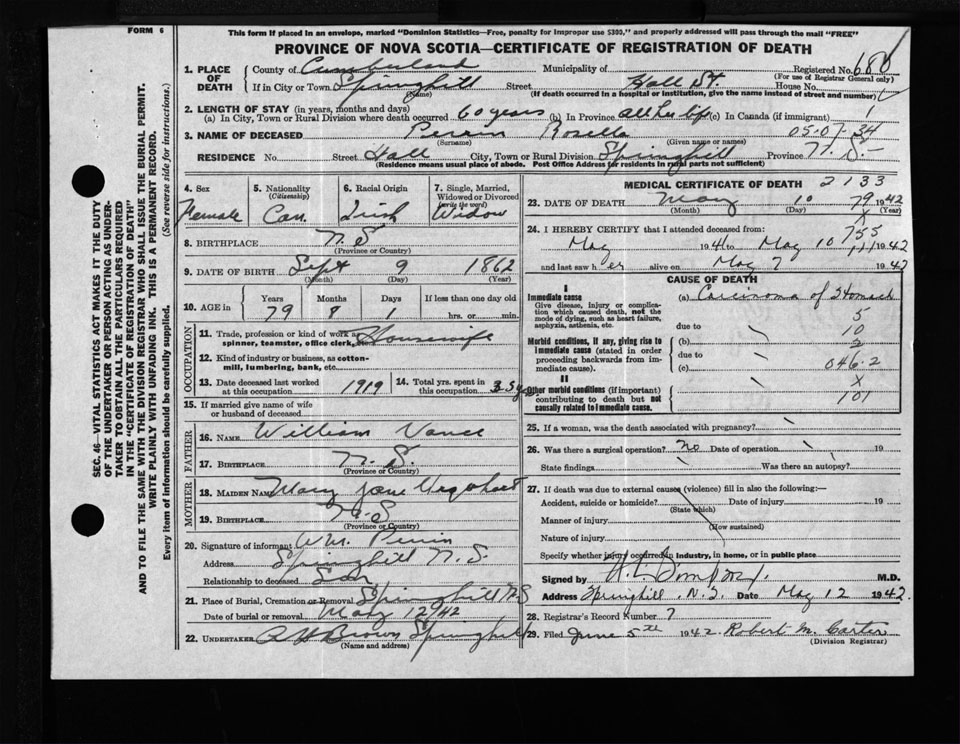 FORM 6
This form if placed in an envelope, marked "Dominion Statistics—Free, penalty for improper use $300," and properly addressed will pass through the mail "FREE"
PROVINCE OF NOVA SCOTIA—CERTIFICATE OF REGISTRATION OF DEATH
1. PLACE OF DEATH County of Cumberland Municipality of Registered No. 680
(For use of Registrar General only)
If in City or Town Springhill Street Hall St. House No.
(Name) (If death occurred in a hospital or institution, give the name instead of street and number)
2. LENGTH OF STAY (in years, months and days)
(a) In City, Town or Rural Division where death occurred 60 years (b) In Province all her life (c) In Canada (if immigrant)
3. NAME OF DECEASED Perrin Rosella 05-07-34
(Surname) (Given name or names)
RESIDENCE No. Street Hall City, Town or Rural Division Springhill Province N. S.
(Residence means usual place of abode. Post Office Address for residents in rural parts not sufficient)
4. Sex Female
5. Nationality (Citizenship) Can.
6. Racial Origin Irish
7. Single, Married, Widowed or Divorced (write the word) Widow
8. BIRTHPLACE N. S
(Province or Country)
9. DATE OF BIRTH Sept 9 1862
(Month) (Day) (Year)
10. AGE in Years Months Days If less than one day old
79 8 1 hrs. or min.
OCCUPATION
11. Trade, profession or kind of work as spinner, teamster, office clerk, Housewife
12. Kind of industry or business, as cotton-mill, lumbering, bank, etc.
13. Date deceased last worked at this occupation 1919
14. Total yrs. spent in this occupation
15. If married give name of wife or husband of deceased
FATHER
16. NAME William Vance
17. BIRTHPLACE N. S.
(Province or Country)
MOTHER
18. MAIDEN NAME Mary Jane
19. BIRTHPLACE N. S
(Province or Country)
20. Signature of informant Wm. Perrin
Address Springhill N. S.
Relationship to deceased Son
21. Place of Burial, Cremation or Removal Springhill N S
Date of burial or removal May 12/42
22. UNDERTAKER Brown Springhill
(Name and address)
MEDICAL CERTIFICATE OF DEATH 2133
23. DATE OF DEATH May 10 1942
(Month) (Day) (Year)
79
X
24. I HEREBY CERTIFY that I attended deceased from:
755
May 1941 to May 10 1942
and last saw her alive on May 7 1942
CAUSE OF DEATH
I
Immediate cause
Give disease, injury or complication which caused death, not the mode of dying, such as heart failure, asphyxia, asthenia, etc.
(a) Carcinoma of Stomach
5
due to
10
Morbid conditions, if any, giving rise to immediate cause (stated in order proceeding backwards from immediate cause).
(b)
2
due to
(c) 046.2
II
X
Other morbid conditions (if important) contributing to death but not causally related to immediate cause.
101
25. If a woman, was the death associated with pregnancy?
26. Was there a surgical operation? No Date of operation 19
State findings Was there an autopsy?
27. If death was due to external causes (violence) fill in also the following:—
Accident, suicide or homicide? Date of injury 19
(State which)
Manner of injury
(How sustained)
Nature of injury
Specify whether injury occurred in industry, in home, or in public place
Signed by M.D.
Address Springhill, N. S. Date May 12 1942
28. Registrar's Record Number 7
29. Filed June 5th 1942 Robert M. Carter
(Division Registrar)
SEC. 46—VITAL STATISTICS ACT MAKES IT THE DUTY
OF THE UNDERTAKER OR PERSON ACTING AS UNDER-
TAKER TO OBTAIN ALL THE PARTICULARS REQUIRED
IN THE "CERTIFICATE OF REGISTRATION OF DEATH"
AND TO FILE THE SAME WITH THE DIVISION REGISTRAR WHO SHALL ISSUE THE BURIAL PERMIT.
WRITE PLAINLY WITH UNFADING INK. THIS IS A PERMANENT RECORD.
Every item of information should be carefully supplied. (See reverse side for instructions.)